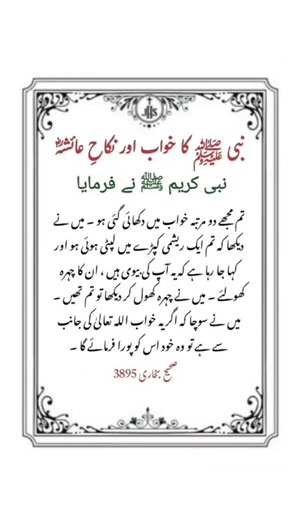 نبی ﷺ کا خواب اور نکاحِ عائشہؓ
نبی کریم ﷺ نے فرمایا
تم مجھے دو مرتبہ خواب میں دکھائی گئی ہو ۔ میں نے
دیکھا کہ تم ایک ریشمی کپڑے میں لپٹی ہوئی ہو اور
کہا جا رہا ہے کہ یہ آپ کی بیوی ہیں ، ان کا چہرہ
کھولئے ۔ میں نے چہرہ کھول کر دیکھا تو تم تھیں ۔
میں نے سوچا کہ اگر یہ خواب اللہ تعالیٰ کی جانب
سے ہے تو وہ خود اس کو پورا فرمائے گا ۔
صحیح بخاری 3895